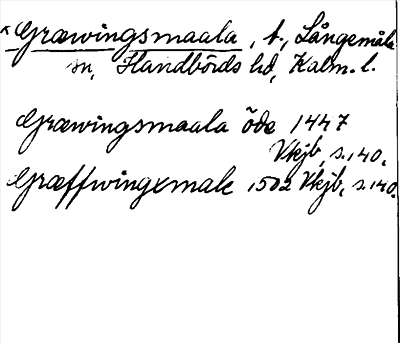 *Græwingsmaala, t., Långemåla
sn, Handbörds hd, Kalm. l.
Græwingsmaala öde 1447
Vkjb, s. 140.
Græffwingxmale 1502 Vkjb, s. 140.